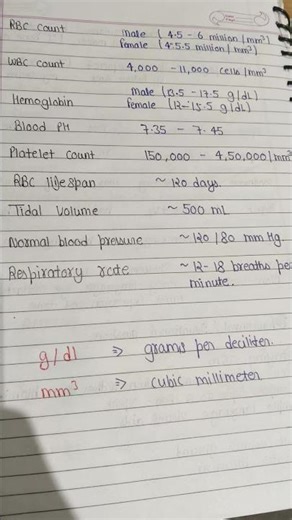 RBC Count male (4.5 - 6 million/mm³)
female (4.5 5.5 million/mm³)
WBC count 4,000 - 11,000 cells/mm³
Hemoglobin male (13.5 - 17.5 g/dL)
female (12 - 15.5 g/dL)
Blood PH 7.35 - 7.45
Platelet Count 150,000 - 4,50,000/mm³
RBC life span ~ 120 days.
Tidal Volume ~ 500 mL
Normal blood pressure ~120/80 mmHg.
Respiratory rate ~ 12-18 breaths per
minute.
g/dl ⇒ grams per deciliter.
mm³ ⇒ cubic millimeter